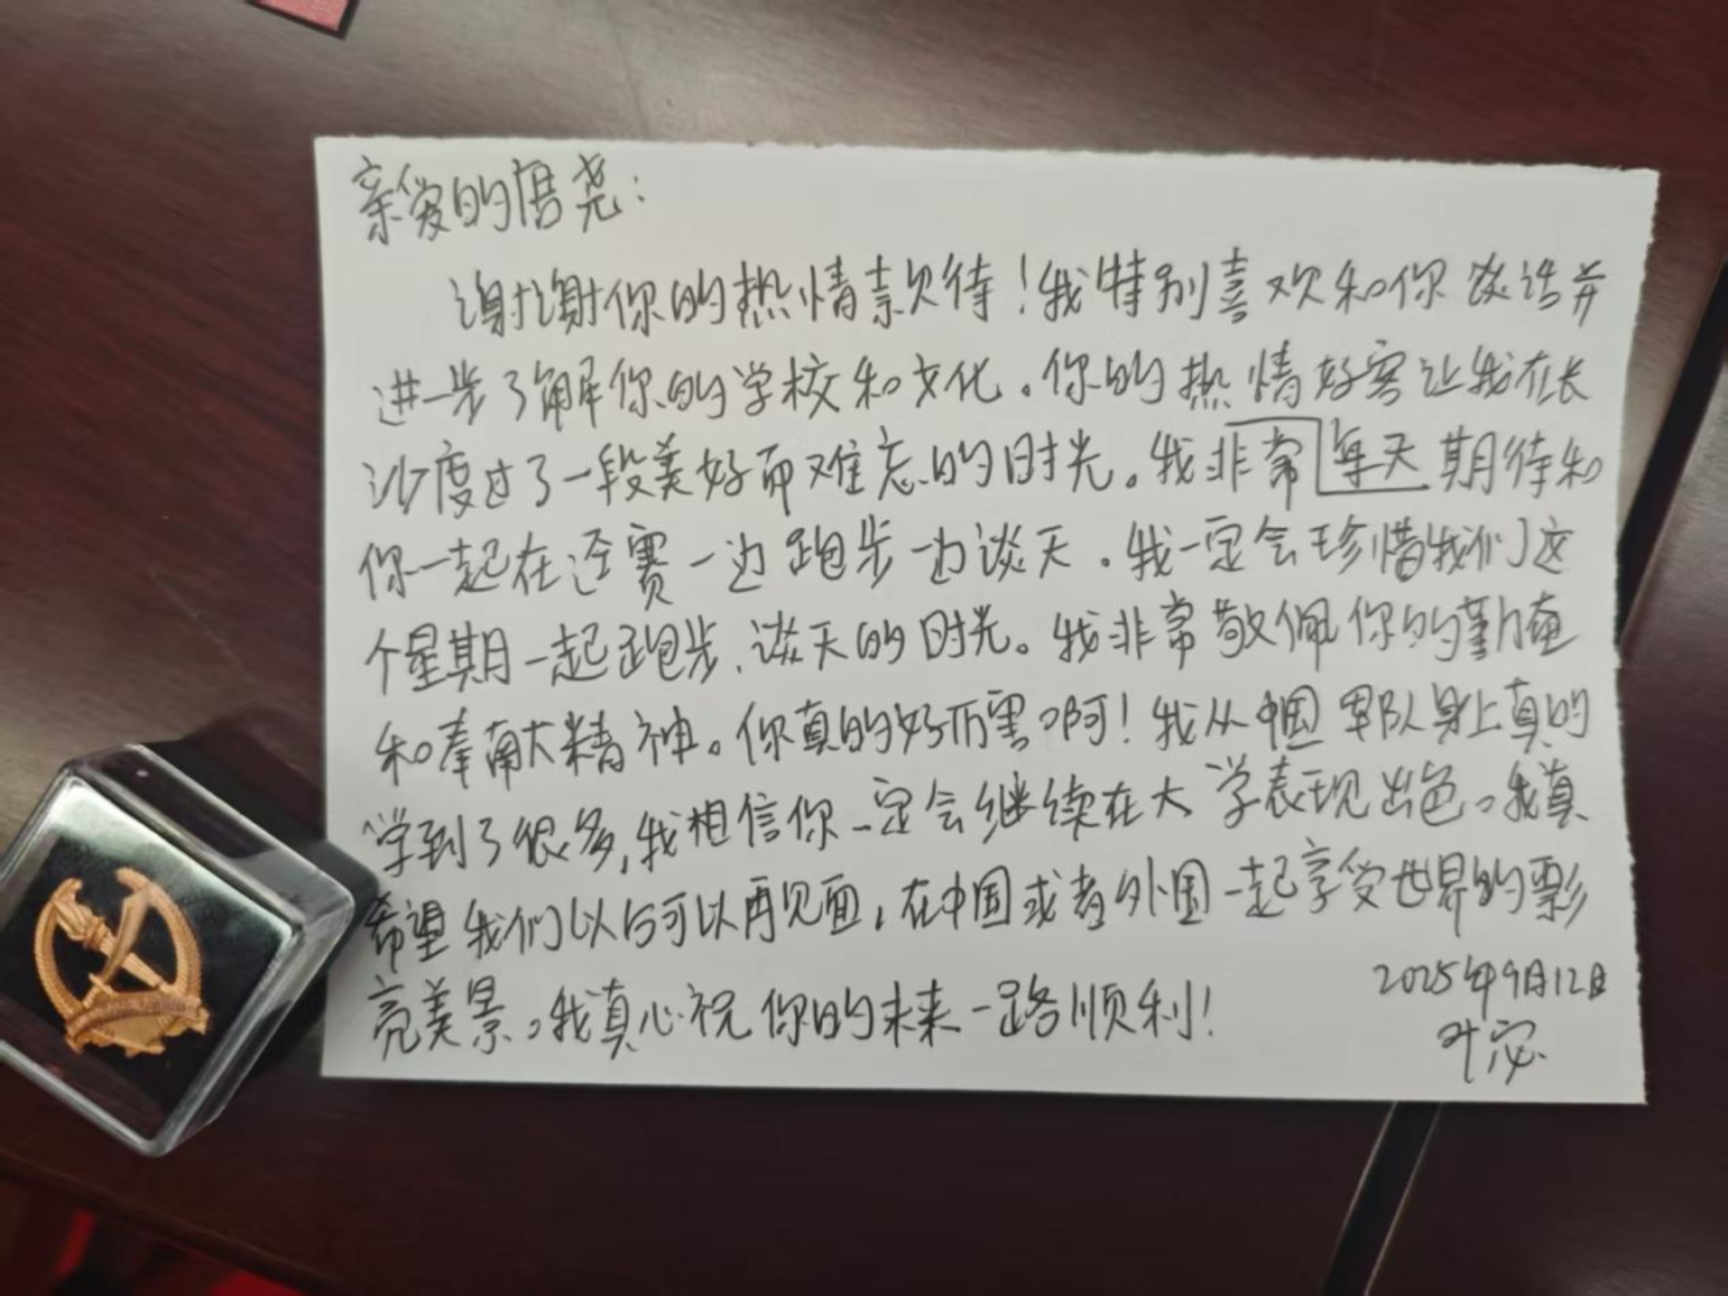 亲爱的唐尧：
谢谢你的热情款待！我特别喜欢和你谈话并
进一步了解你的学校和文化。你的热情好客让我在长
沙度过了一段美好而难忘的时光。我非常每天期待和
你一起在迳赛一边跑步一边谈天。我一定会珍惜我们这
个星期一起跑步、谈天的时光。我非常敬佩你的勤
和奉献精神。你真的好厉害啊！我从中国军队身上真的
学到了很多，我相信你一定会继续在大学表现出色。我真
希望我们以后可以再见面，在中国或者外国一起享受世界的漂
亮美景。我真心祝你的未来一路顺利！
2025年9月12日
叶宓